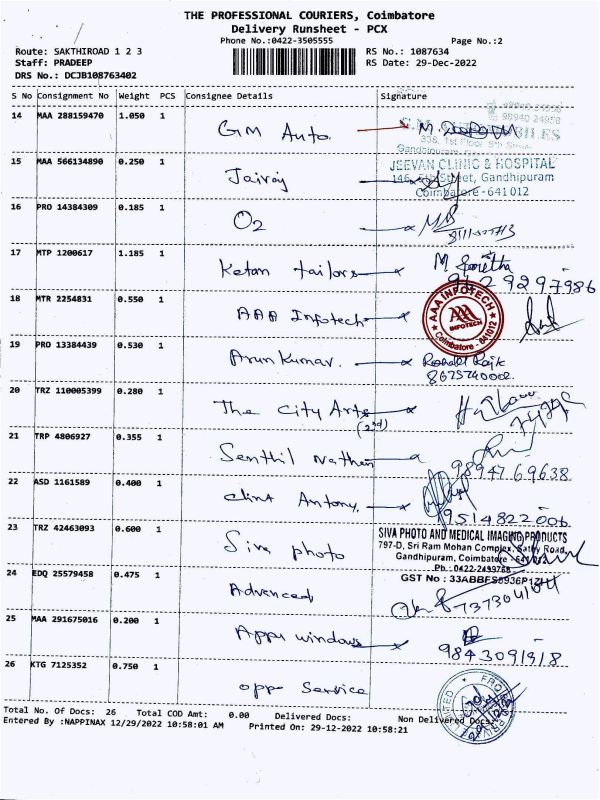 THE PROFESSIONAL COURIERS, Coimbatore
Delivery Runsheet - PCX
Phone No.:0422-3505555 Page No.:2
Route: SAKTHIROAD 1 2 3 RS No.: 1087634
Staff: PRADEEP RS Date: 29-Dec-2022
DRS No.: DCJB108763402
S No Consignment No Weight PCS Consignee Details Signature
14 MAA 288159470 1.050 1 GM Auto
98940 24958
308, 1st Floor, 5th Street
15 MAA 566134890 0.250 1 Jairaj
JEEVAN CLINIC & HOSPITAL
146, 5th Street, Gandhipuram
Coimbatore - 641 012
16 PRO 14384309 0.185 1 O2
17 MTP 1200617 1.185 1 Ketan tailors
9629297986
18 MTR 2254831 0.550 1 AAA Infotech
AAA INFOTECH
AAA
INFOTECH
Coimbatore - 641012
19 PRO 13384439 0.530 1 Arun Kumar.
8675740002.
20 TRZ 110005399 0.280 1 The City Arts
(2nd)
21 TRP 4806927 0.355 1 Senthil Nathan
9894769638
22 ASD 1161589 0.400 1 Clint Antony.
9514822006
23 TRZ 42463093 0.600 1 Siva photo
SIVA PHOTO AND MEDICAL IMAGING PRODUCTS
797-D, Sri Ram Mohan Complex, Sathy Road,
Gandhipuram, Coimbatore - 641 012
Ph : 0422-2499768
24 EDQ 25579458 0.475 1 Advanced
GST No : 33ABBFS8936P1ZH
7373041104
25 MAA 291675016 0.200 1 Appu windows
9843091918
26 KTG 7125352 0.750 1 oppo Service
Total No. Of Docs: 26 Total COD Amt: 0.00 Delivered Docs: Non Delivered Docs:
Entered By :NAPPINAX 12/29/2022 10:58:01 AM Printed On: 29-12-2022 10:58:21